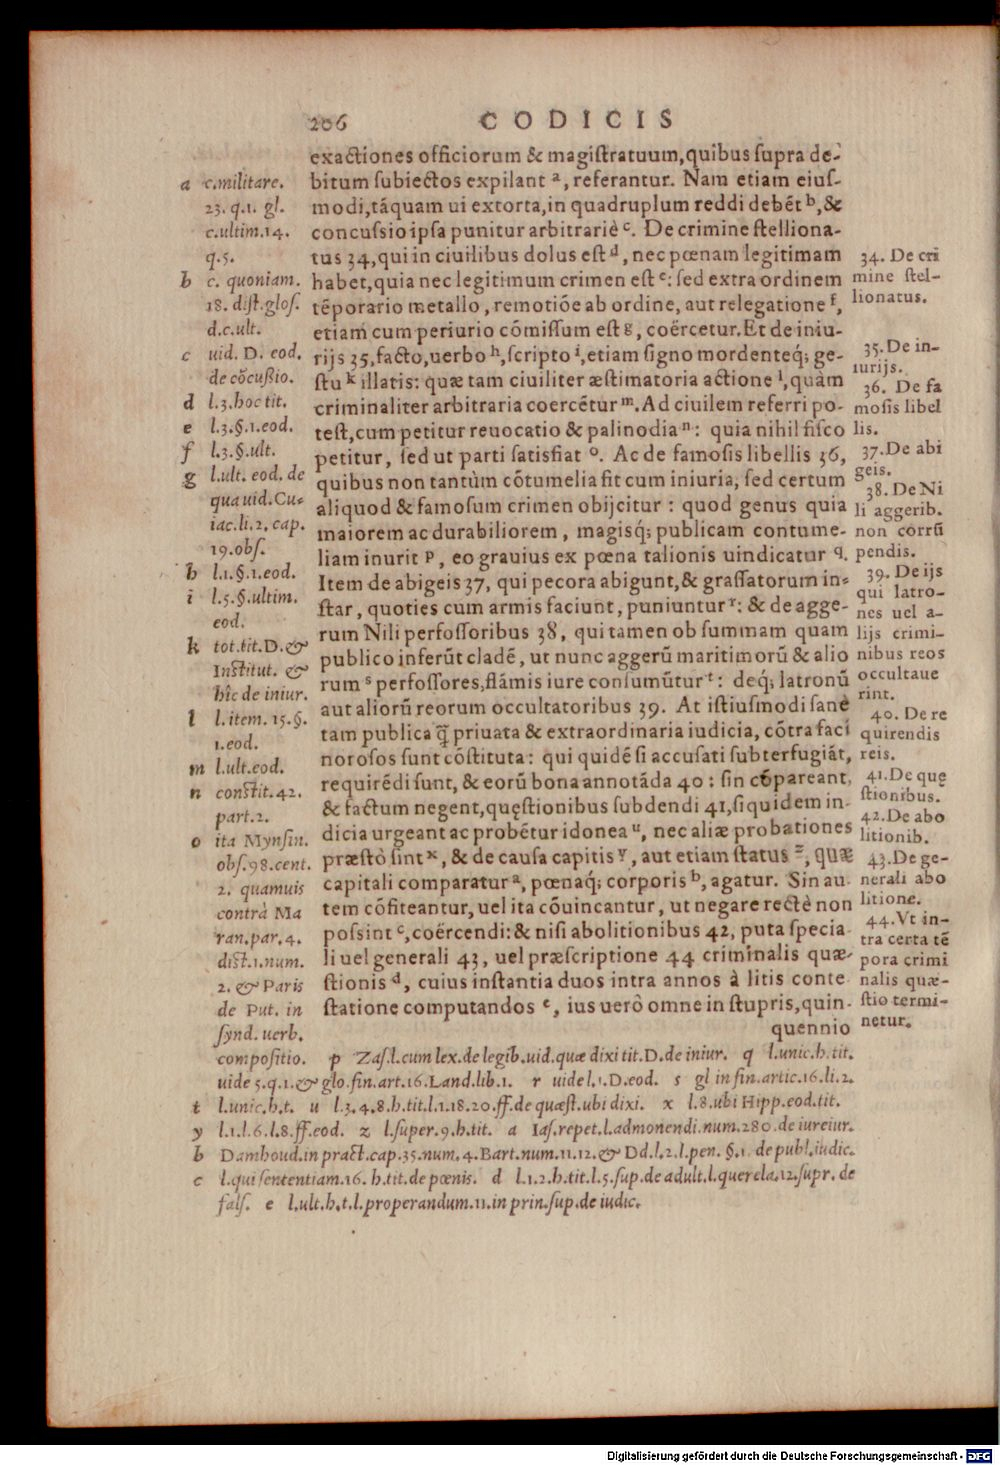 206 CODICIS
exactiones officiorum & magiſtratuum,quibus ſupra de-
bitum ſubiectos expilant ᵃ, referantur. Nam etiam eiuſ-
modi,táquam ui extorta,in quadruplum reddi debét ᵇ,&
concuſsio ipſa punitur arbitrariè ᶜ. De crimine ſtelliona-
tus 34,qui in ciuilibus dolus eſt ᵈ, nec pœnam legitimam
habet,quia nec legitimum crimen eſt ᵉ: ſed extra ordinem
tẽporario metallo, remotióe ab ordine, aut relegatione ᶠ,
etiam cum periurio cómiſſum eſt ᵍ, coërcetur. Et de iniu-
rijs 35, facto, uerbo ʰ, ſcripto ⁱ, etiam ſigno mordenteq́; ge-
ſtu ᵏ illatis: quæ tam ciuiliter æſtimatoria actione ˡ, quàm
criminaliter arbitraria coercétur ᵐ. Ad ciuilem referri po-
teſt,cum petitur reuocatio & palinodia ⁿ: quia nihil fiſco
petitur, ſed ut parti ſatisfiat ᵒ. Ac de famoſis libellis 36,
quibus non tantùm cõtumelia fit cum iniuria, ſed certum
aliquod & famoſum crimen obijcitur : quod genus quia
maiorem ac durabiliorem, magisq́; publicam contume-
liam inurit ᵖ, eo grauius ex pœna talionis uindicatur q.
Item de abigeis 37, qui pecora abigunt,& graſſatorum in-
ſtar, quoties cum armis faciunt, puniuntur ʳ: & de agge-
rum Nili perfoſſoribus 38, qui tamen ob ſummam quam
publico inferũt cladẽ, ut nunc aggerũ maritimorũ & alio
rum ˢ perfoſſores,flámis iure conſumũtur ᵗ: deq́; latronũ
aut aliorũ reorum occultatoribus 39. At iſtiuſmodi ſanè
tam publica q̃ priuata & extraordinaria iudicia, cõtra faci
noroſos ſunt cóſtituta: qui quidé ſi accuſati ſubterfugiát,
requirédi ſunt, & eorũ bona annotáda 40: ſin cõpareant,
& factum negent,quęſtionibus ſubdendi 41,ſiquidem in-
dicia urgeant ac probétur idonea ᵘ, nec aliæ probationes
præſtò ſint ˣ, & de cauſa capitis ʸ, aut etiam ſtatus ᶻ, quæ
capitali comparatur ᵃ, pœnaq́; corporis ᵇ, agatur. Sin au-
tem cõfiteantur, uel ita cõuincantur, ut negare rectè non
poſsint ᶜ,coërcendi:& niſi abolitionibus 42, puta ſpecia-
li uel generali 43, uel præſcriptione 44 criminalis quæ-
ſtionis ᵈ, cuius inſtantia duos intra annos à litis conte-
ſtatione computandos ᵉ, ius uerò omne in ſtupris, quin-
quennio
a c.militare.
23. q.1. gl.
c.ultim.14.
q.5.
b c. quoniam.
18. diſt.gloſ.
d.c.ult.
c uid. D. eod.
de cõcuſsio.
d l.3.hoc tit.
e l.3.§.1.eod.
f l.3.§.ult.
g l.ult. eod. de
qua uid.Cu-
iac.li.2. cap.
19.obſ.
h l.1.§.1.eod.
i l.5.§.ultim.
eod.
k tot.tit.D.&
Inſtitut. &
hîc de iniur.
l l.item. 15.§.
1.eod.
m l.ult.eod.
n conſtit.42.
part.2.
o ita Mynſin.
obſ.98.cent.
2. quamuis
contrà Ma
ran.par.4.
diſt.1.num.
2. & Paris
de Put. in
ſynd. uerb.
compoſitio. p Zaſ.l.cum lex.de legib.uid.quæ dixi tit.D.de iniur. q l.unic.h.tit.
uide 5.q.1.& glo.fin.art.16.Land.lib.1. r uide l.1.D.eod. s gl in fin.artic.16.li.2.
t l.unic.h.t. u l.3.4.8.h.tit.l.1.18.20.ff.de quæſt.ubi dixi. x l.8.ubi Hipp.eod.tit.
y l.1.l.6.l.8.ff.eod. z l.ſuper.9.h.tit. a Iaſ.repet.l.admonendi.num.280.de iureiur.
b Damhoud.in pract.cap.35.num.4.Bart.num.11.12.& Dd.l.2.l.pen. §.1. de publ.iudic.
c l.qui ſententiam.16. h.tit.de pœnis. d l.1.2.h.tit.l.5.ſup.de adult.l.querela.12.ſupr. de
falſ. e l.ult.h.t.l.properandum.11.in prin.ſup.de iudic.
34. De cri
mine ſtel-
lionatus.
35.De in-
iurijs.
36. De fa
moſis libel
lis.
37.De abi
geis.
38.De Ni
li aggerib.
non corrũ
pendis.
39. De ijs
qui latro-
nes uel a-
lijs crimi-
nibus reos
occultaue
rint.
40. De re
quirendis
reis.
41.De quę
ſtionibus.
42.De abo
litionib.
43.De ge-
nerali abo
litione.
44.Vt in-
tra certa tẽ
pora crimi
nalis quæ-
ſtio termi-
netur.
Digitalisierung gefördert durch die Deutsche Forschungsgemeinschaft - DFG